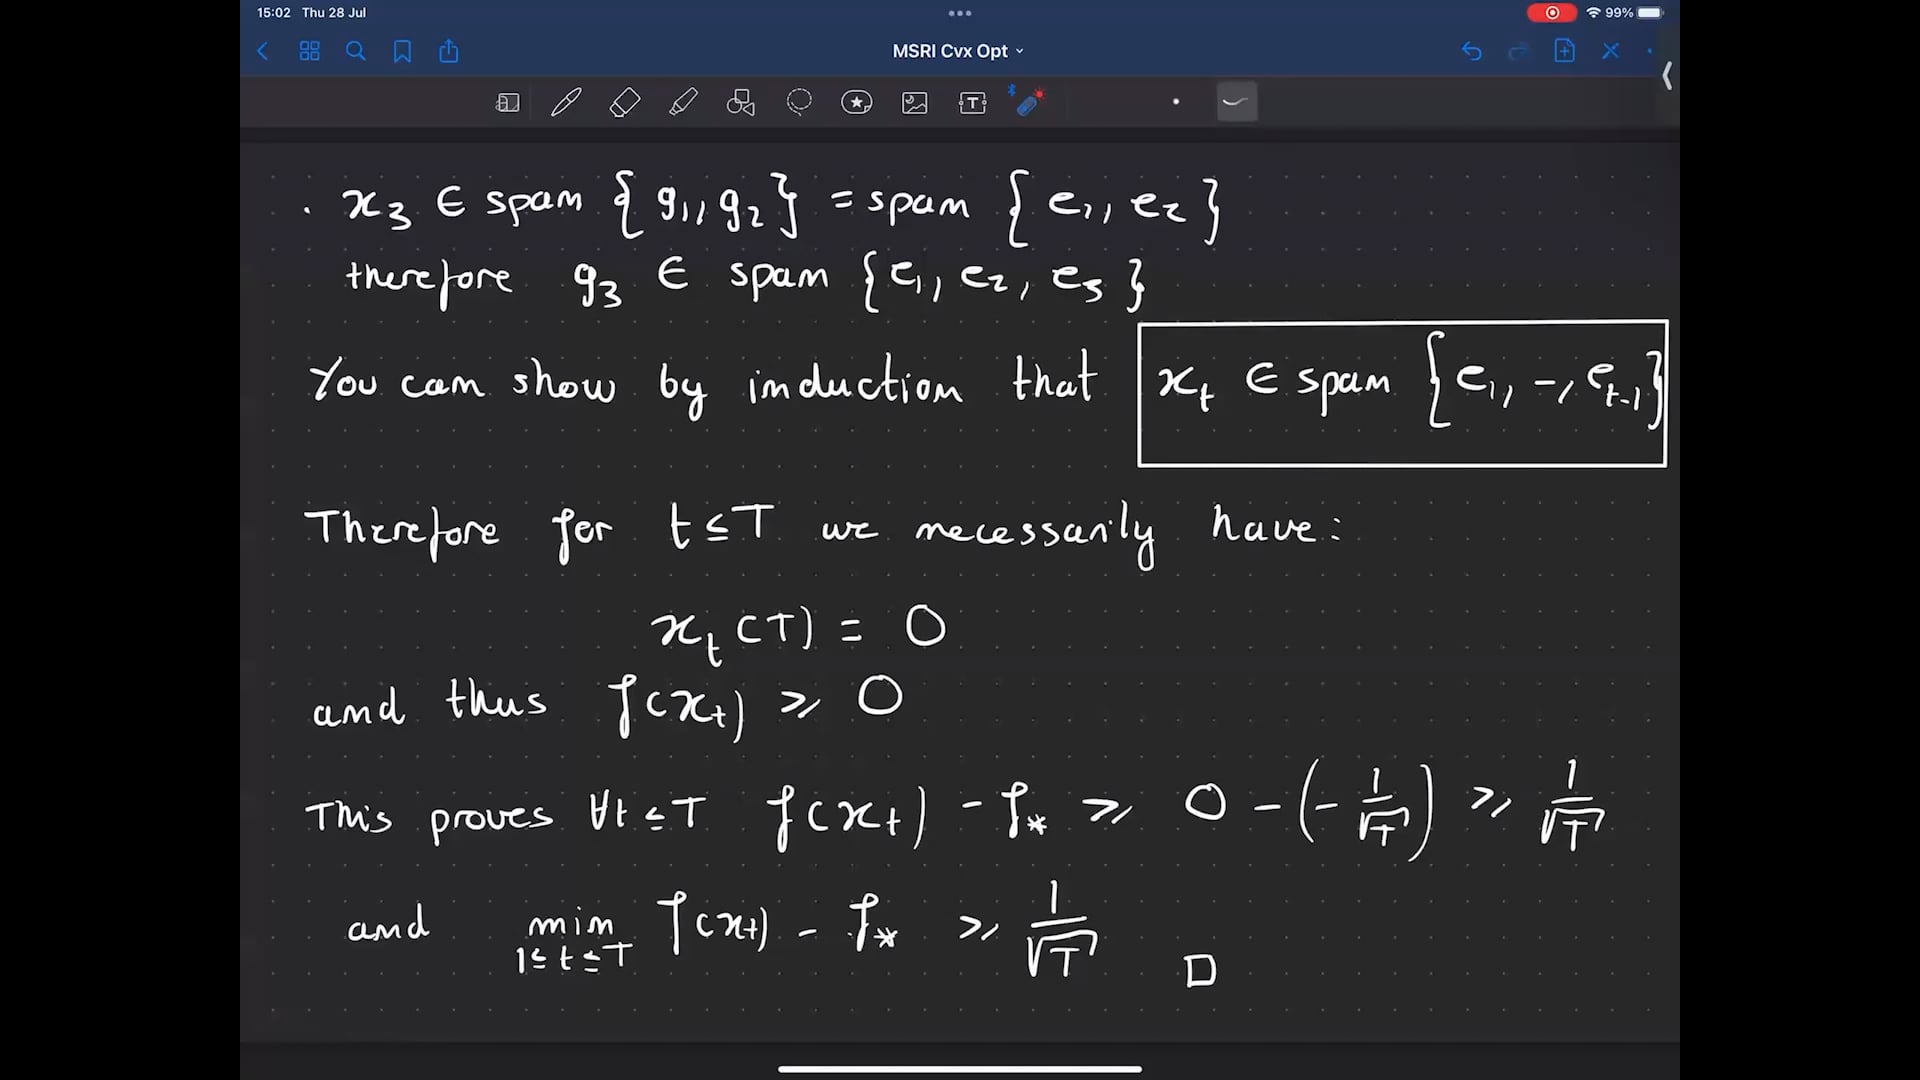 15:02 Thu 28 Jul
99%
MSRI Cvx Opt
T
. x₃ ∈ span { g₁, g₂ } = span { e₁, e₂ }
therefore g₃ ∈ span { e₁, e₂, e₃ }
You can show by induction that x_t ∈ span { e₁, -, e_{t-1} }
Therefore for t ≤ T we necessarily have:
x_t (T) = 0
and thus f(x_t) ≥ 0
This proves ∀t ≤ T f(x_t) - f_* ≥ 0 - (- 1/√T) ≥ 1/√T
and min_{1≤t≤T} f(x_t) - f_* ≥ 1/√T □